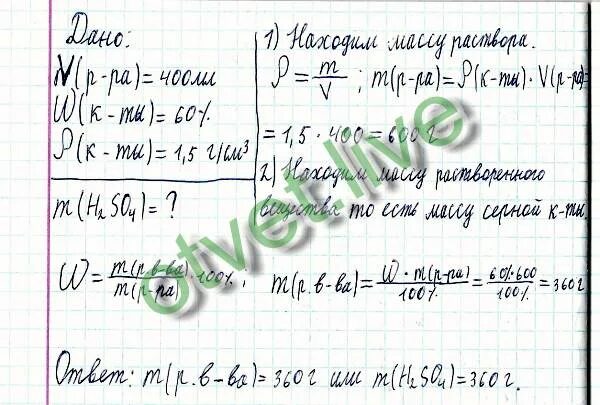 Дано:
V(р-ра)=400мл
W(к-ты)=60%
ρ(к-ты)=1,5 г/см³
m(H₂SO₄)=?
1) Находим массу раствора.
ρ = m/V ; m(р-ра)=ρ(к-ты)·V(р-ра)=
=1,5·400=600г
2) Находим массу растворенного
вещества то есть массу серной к-ты
W = m(р.в-ва)/m(р-ра) · 100% ; m(р.в-ва)= W·m(р-ра)/100% = 60%·600/100% = 360г
Ответ: m(р.в-ва)=360г или m(H₂SO₄)=360г.
otvet.live